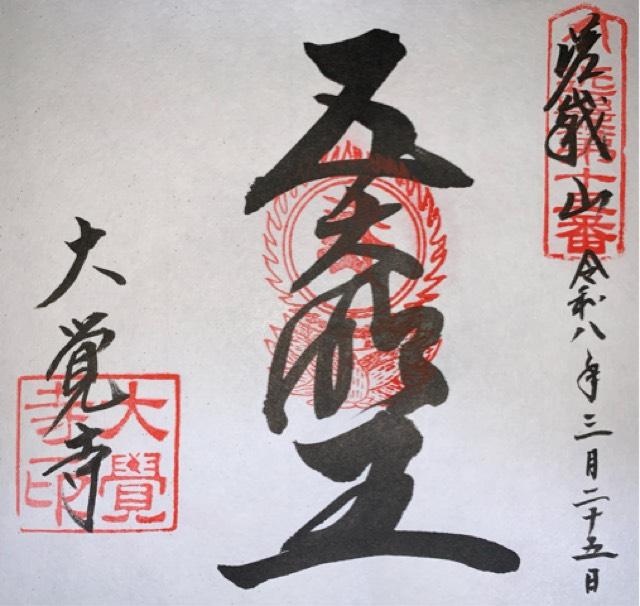 嵯峨山
令和八年三月二十五日
五大明王
大覚寺
大覺
寺印